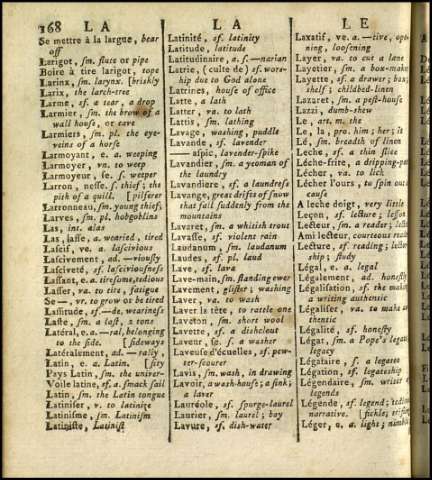 168 L A
L A
L E
Se mettre à la largue, bear
off
Larigot, sm. flute or pipe
Boire à tire larigot, tope
Larinx, sm. larynx. [briskly
Larix, the larch-tree
Larme, sf. a tear, a drop
Larmier, sm. the brow of a
wall house, or cave
Larmiers, sm. pl. the eye-
veins of a horse
Larmoyant, e a. weeping
Larmoyer, va. to weep
Larmoyeur, se. s. weeper
Larron, nesse. s. thief; the
pith of a quill. [pilferer
Larronneau, sm. young thief,
Larves, sm. pl. hobgoblins
Las, int. alas
Las, lasse, a. wearied, tired
Lascif, ve. a. lascivious
Lascivement, ad. —viously
Lasciveté, sf. lasciviousness
Lassant, e a. tiresome, tedious
Lasser, va. to tire, fatigue
Se —, vr. to grow or be tired
Lassitude, sf. —de, weariness
Laste, sm. a last, 2 tons
Latéral, e a. —ral, belonging
to the side. [sideways
Latéralement, ad. — rally,
Latin, e a. Latin. [sity
Pays Latin, sm. the univer-
Voile latine, sf. a smack sail
Latin, sm. the Latin tongue
Latiniser, v. to latinize
Latinisme, sm. Latinism
Latiniste, Latinist
Latinité, sf. latinity
Latitude, latitude
Latitudinaire, a. s. —narian
Latrie, (culte de) sf. wor-
ship due to God alone
Latrines, house of office
Latte, a lath
Latter, va. to lath
Lattis, sm. lathing
Lavage, washing, puddle
Lavande, sf. lavender
aspic, lavender-spike
Lavandier, sm. a yeoman of
the laundry
Lavandiere, sf. a laundress
Lavange, great drifts of snow
that fall suddenly from the
mountains
Lavaret, sm. a whitish trout
Lavasse, sf. violent rain
Laudanum, sm. laudanum
Laudes, sf. pl. laud
Lave, sf. lava
Lave-main, sm. standing ewer
Lavement, glister; washing
Laver, va. to wash
Laver la tête, to rattle one
Laveton, sm. short wool
Lavette, sf. a dishclout
Laveur, se. s. a washer
Laveuse d'écuelles, sf. pew-
ter-scourer
Lavis, sm. wash, in drawing
Lavoir, a wash-house; a sink;
a laver
Lauréole, sf. spurge-laurel
Laurier, sm. laurel; bay
Lavure, sf. dish-water
Laxatif, ve. a. —tive, ope-
ning, loosening
Layer, va. to cut a lane
Layetier, sm. a box-make
Layette, sf. a drawer; box;
shelf; childbed-linen
Lazaret, sm. a pest-house
Lazzi, dumb-shew
Le, art. m. the
Le, la, pro. him; her; it
Lé, sm. breadth of linen
Leche, sf. a thin slice
Lèche-frire, a dripping-pa
Lécher, va. to lick
Lécher l'ours, to spin out
cause
A leche doigt, very little
Leçon, sf. lecture; lesson
Lecteur, sm. a reader; lect
Ami lecteur, courteous reade
Lecture, sf. reading; lectur
ship; study
Légal, e. a. legal
Légalement, ad. honestly
Légalisation, sf. the making
a writing authentic
Légaliser, va. to make au
thentic
Légalité, sf. honesty
Légat, sm. a Pope's legate
legacy
Légataire, s. a legatee
Légation, sf. legateship
Légendaire, sm. writer of
legends
Légende, sf. legend; tedious
narrative. [fickle; trifling
Léger, e, a. light; nimble